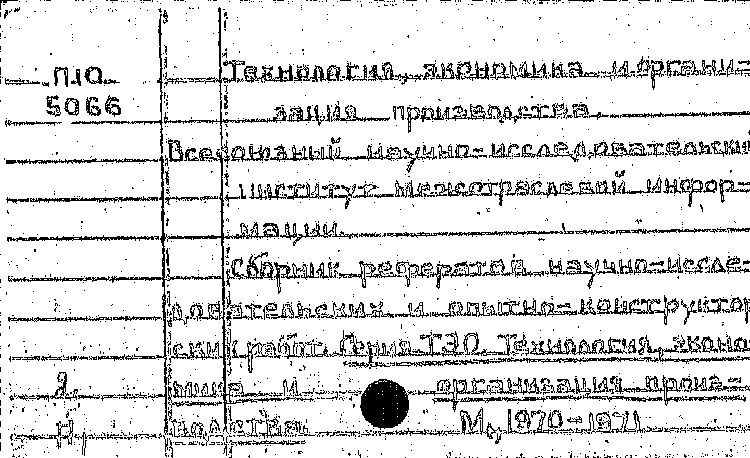 П10 Технология, экономика и органи-
5066 зация производства.
Всесоюзный научно-исследовательский
институт межотраслевой инфор-
мации.
Сборник рефератов научно-иссле-
довательских и опытно-конструктор
ских работ. Серия ТЭО. Технология, эконо-
2. мика и организация произ-
Н, водства. М., 1970-1971